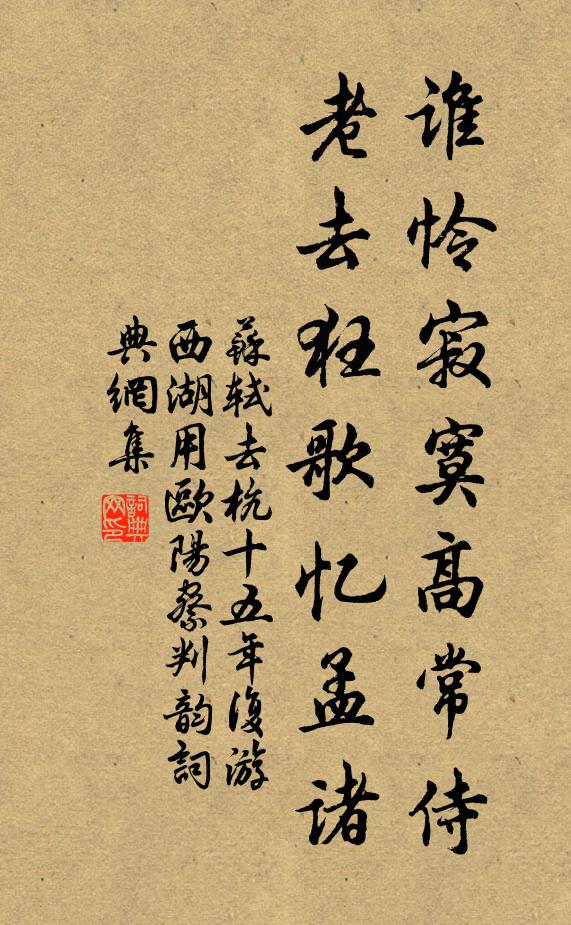 谁怜寂寞高常侍
老去狂歌忆孟诸
蘇轼去杭十五年復游
西湖用歐陽察判韵詞
典網集
詞典网印